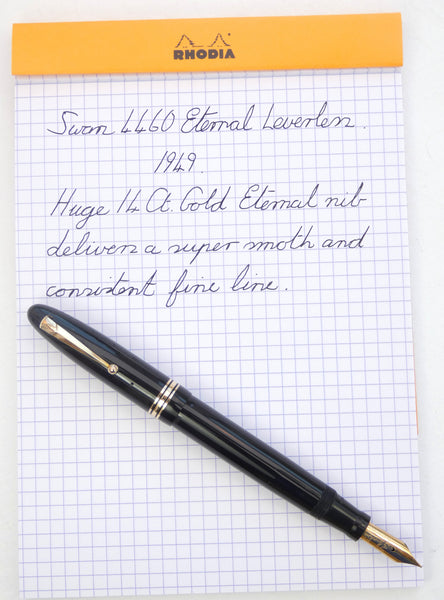 RHODIA
Swan 4460 Eternal Leverless.
1949.
Huge 14 Ct. Gold Eternal nib
delivers a super smoth and
consistent fine line.